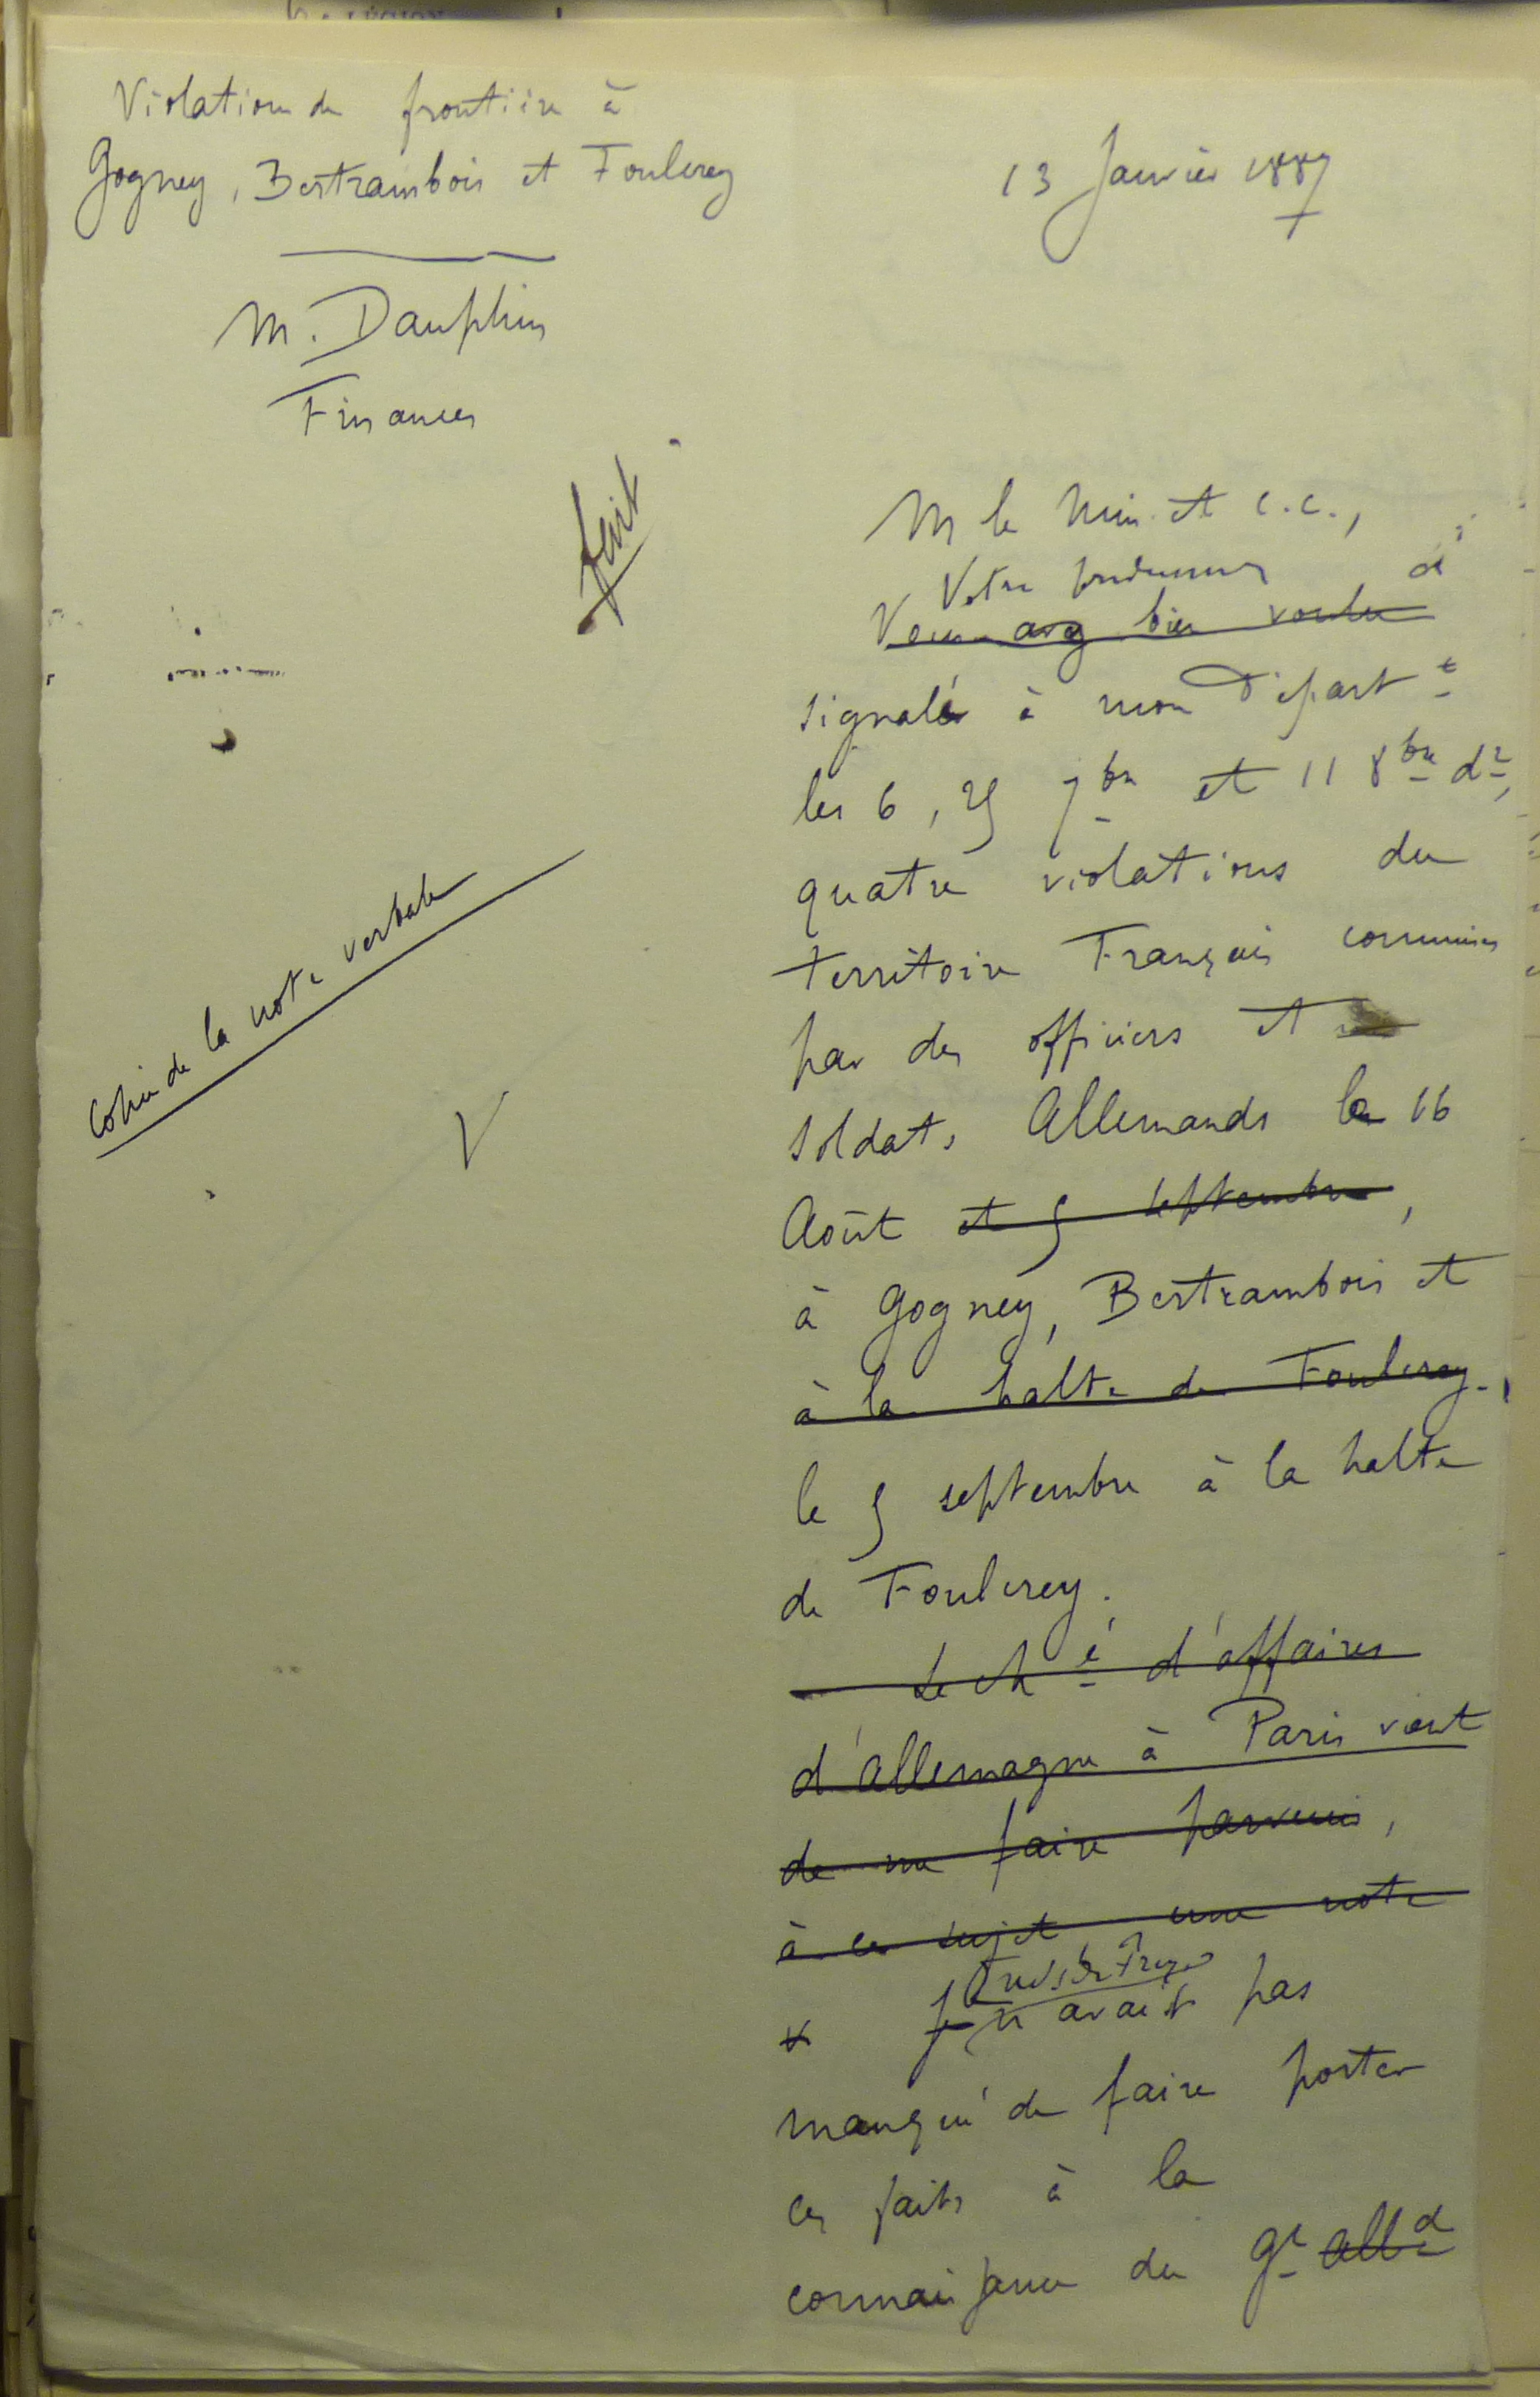 Violation de frontière à
Gogney, Bertrambois et Foulcrey
13 Janvier 1887
M. Dauphin
Finances
fait
M le Min. et c.c.,
Votre prédécesseur a
Vous avez bien voulu
signalé à mon Départt
les 6, 25 7bre et 11 8bre dr,
quatre violations du
territoire Français commises
par des officiers et
soldats Allemands le 16
Août et 5 septembre,
à Gogney, Bertrambois et
à la halte de Foulcrey,
le 5 septembre à la halte
de Foulcrey.
Le ché d'affaires
d'Allemagne à Paris vient
de me faire parvenir,
à ce sujet une note
Je n'avait pas
manqué de faire porter
ces faits à la
connaissance du Gt Alld
Copie de la note verbale